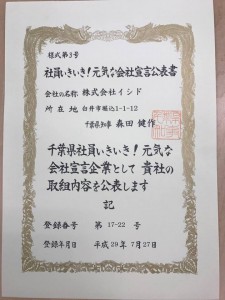 様式第3号
社員いきいき!元気な会社宣言公表書
会社の名称 株式会社イシド
所在地 白井市堀込1-1-12
千葉県知事 森田健作
千葉県社員いきいき!元気な
会社宣言企業として 貴社の
取組内容を公表します
記
登録番号 第 17-22 号
登録年月日 平成29年7月27日